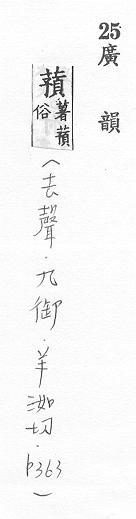 25 廣韻
蕷 薯蕷俗
(去聲.九御.羊洳切.p363)